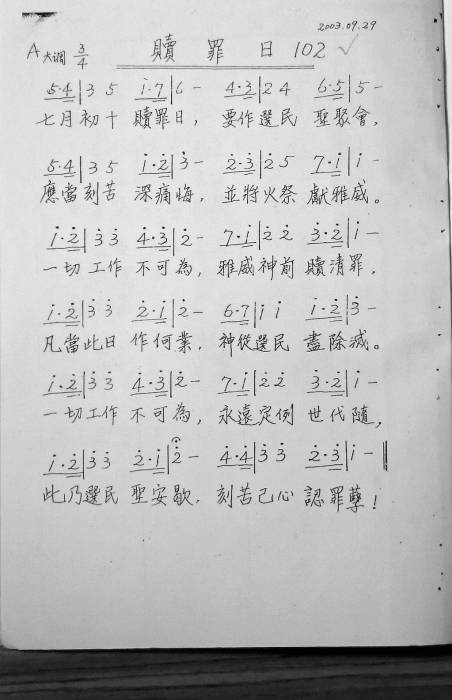 2003.09.29
A大調 3/4 贖罪日 102 ✓
5·4|3 5 i·7|6 – 4·3|2 4 6·5|5 –
七月初十 贖罪日， 要作選民 聖聚會，
5·4|3 5 i·2̇|3̇ – 2̇·3̇|2̇ 5 7·i|i –
應當刻苦 深痛悔， 並將火祭 獻雅威。
i·2̇|3̇ 3̇ 4̇·3̇|2̇ – 7·i|2̇ 2̇ 3̇·2̇|i –
一切工作 不可為， 雅威神前 贖清罪，
i·2̇|3̇ 3̇ 2̇·i|2̇ – 6·7|i i i·2̇|3̇ –
凡當此日 作何業， 神從選民 盡除滅。
i·2̇|3̇ 3̇ 4̇·3̇|2̇ – 7·i|2̇ 2̇ 3̇·2̇|i –
一切工作 不可為， 永遠定例 世代隨，
i·2̇|3̇ 3̇ 2̇·i|2̇ – 4̇·4̇|3̇ 3̇ 2̇·3̇|i – ‖
此乃選民 聖安歇， 刻苦己心 認罪孽！